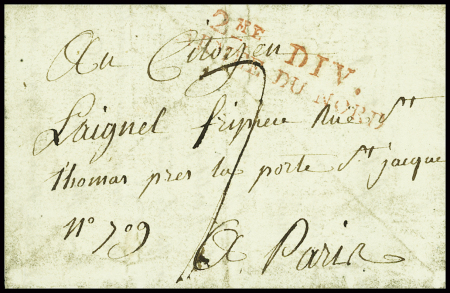 2ME DIV.
ARMÉE DU NORD
Au Citoyen
Laignel fripier Rue St
thomas pres la porte St jacque
n° 709
A Paris